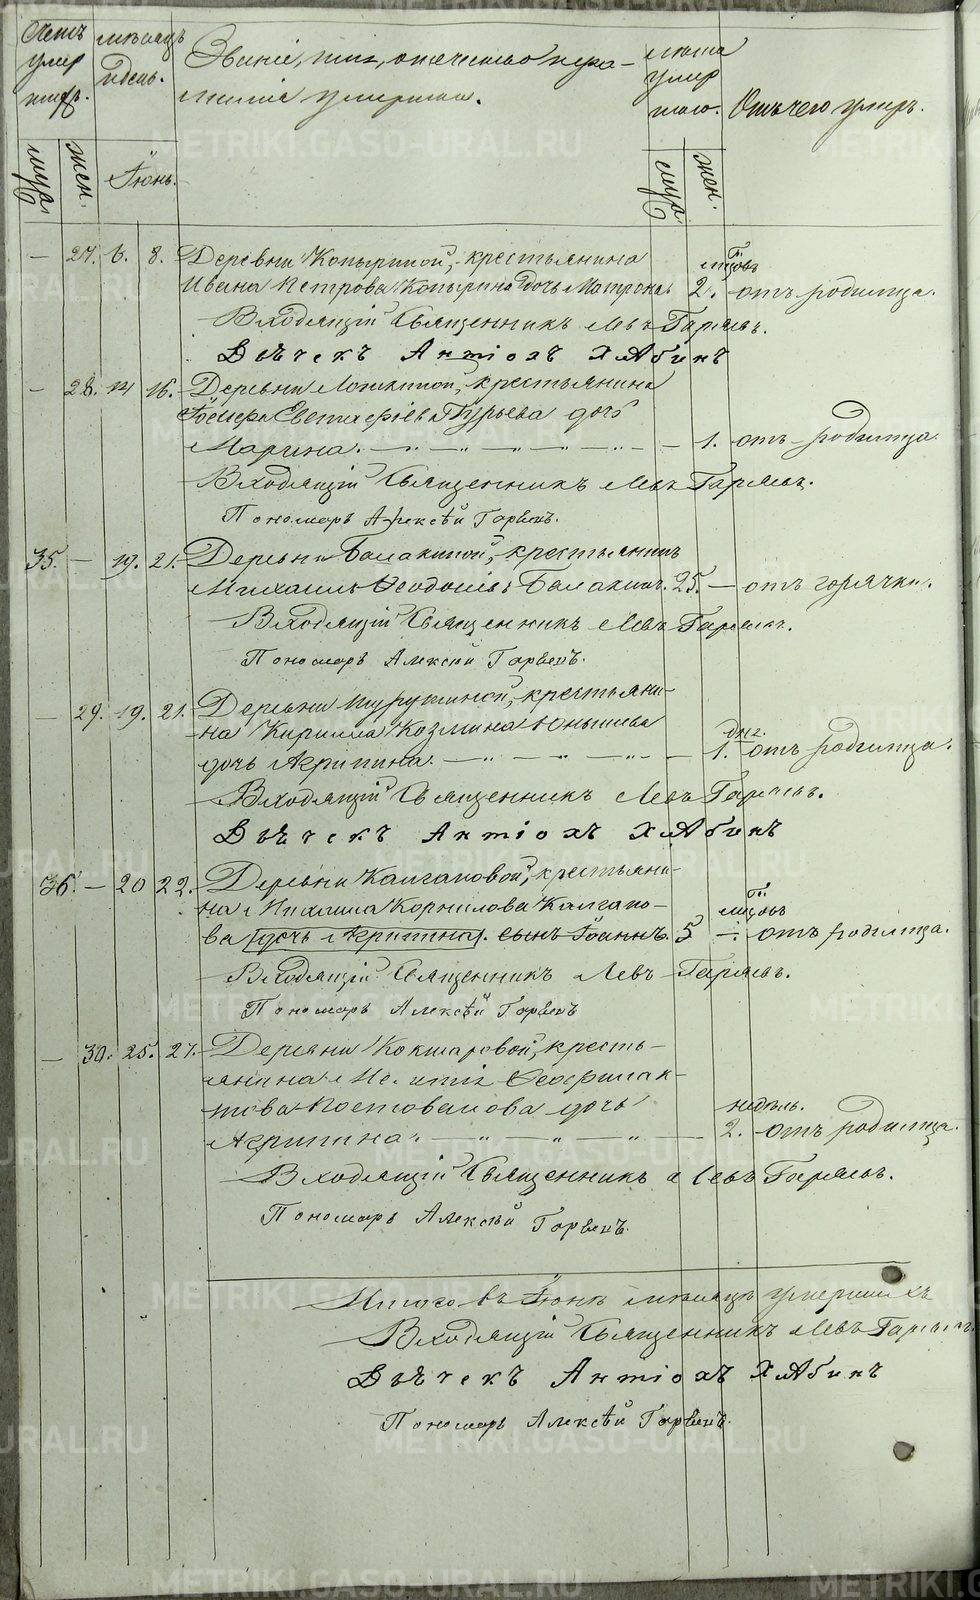 Счетъ умер шихъ.
мѣсяцъ и день.
Званіе, имя, отечество и фа-
милія умершаго.
лѣта умер шаго.
Отъ чего умеръ.
муж. жен.
Іюнь.
муж. жен.
— 27. 6. 8. Деревни Копыриной, крестьянина мѣсяцовъ
Ивана Петрова Копырина дочь Матрона 2. — отъ родимца.
Входящій Священникъ Левъ Гаряевъ.
Дьячекъ Антіохъ Хлябинъ
— 28. 14 16. Деревни Лопаткиной, крестьянина
Іосифа Евстафіева Гурьева дочь
Марина. — 1. отъ родимца.
Входящій Священникъ Левъ Гаряевъ.
Пономарь Алексѣй Горвенъ.
35. — 19. 21. Деревни Балакиной, крестьянинъ
Михаилъ Ѳеодосіевъ Балакинъ. 25. — отъ горячки.
Входящій Священникъ Левъ Гаряевъ.
Пономарь Алексѣй Горвенъ.
— 29. 19. 21. Деревни крестьяни-
на Кирилла Козмина Юнышева дня.
дочь Агрипина. — 1. отъ родимца.
Входящій Священникъ Левъ Гаряевъ.
Дьячекъ Антіохъ Хлябинъ
36. — 20 22. Деревни Калгановой, крестьяни-
на Михаила Корнилова Калгано- мѣсяцовъ
ва дочь Агрипина. сынъ Іоаннъ. 5 — отъ родимца.
Входящій Священникъ Левъ Гаряевъ.
Пономарь Алексѣй Горвенъ
— 30. 25. 27. Деревни Кокшаровой, кресть-
янина Ѳеофилак-
това Костовалова дочь недѣль.
Агрипина. — 2. — отъ родимца.
Входящій Священникъ Левъ Гаряевъ.
Пономарь Алексѣй Горвенъ.
Итого въ Іюнѣ мѣсяцѣ умершихъ
Входящій Священникъ Левъ Гаряевъ.
Дьячекъ Антіохъ Хлябинъ
Пономарь Алексѣй Горвенъ.
METRIKI.GASO-URAL.RU